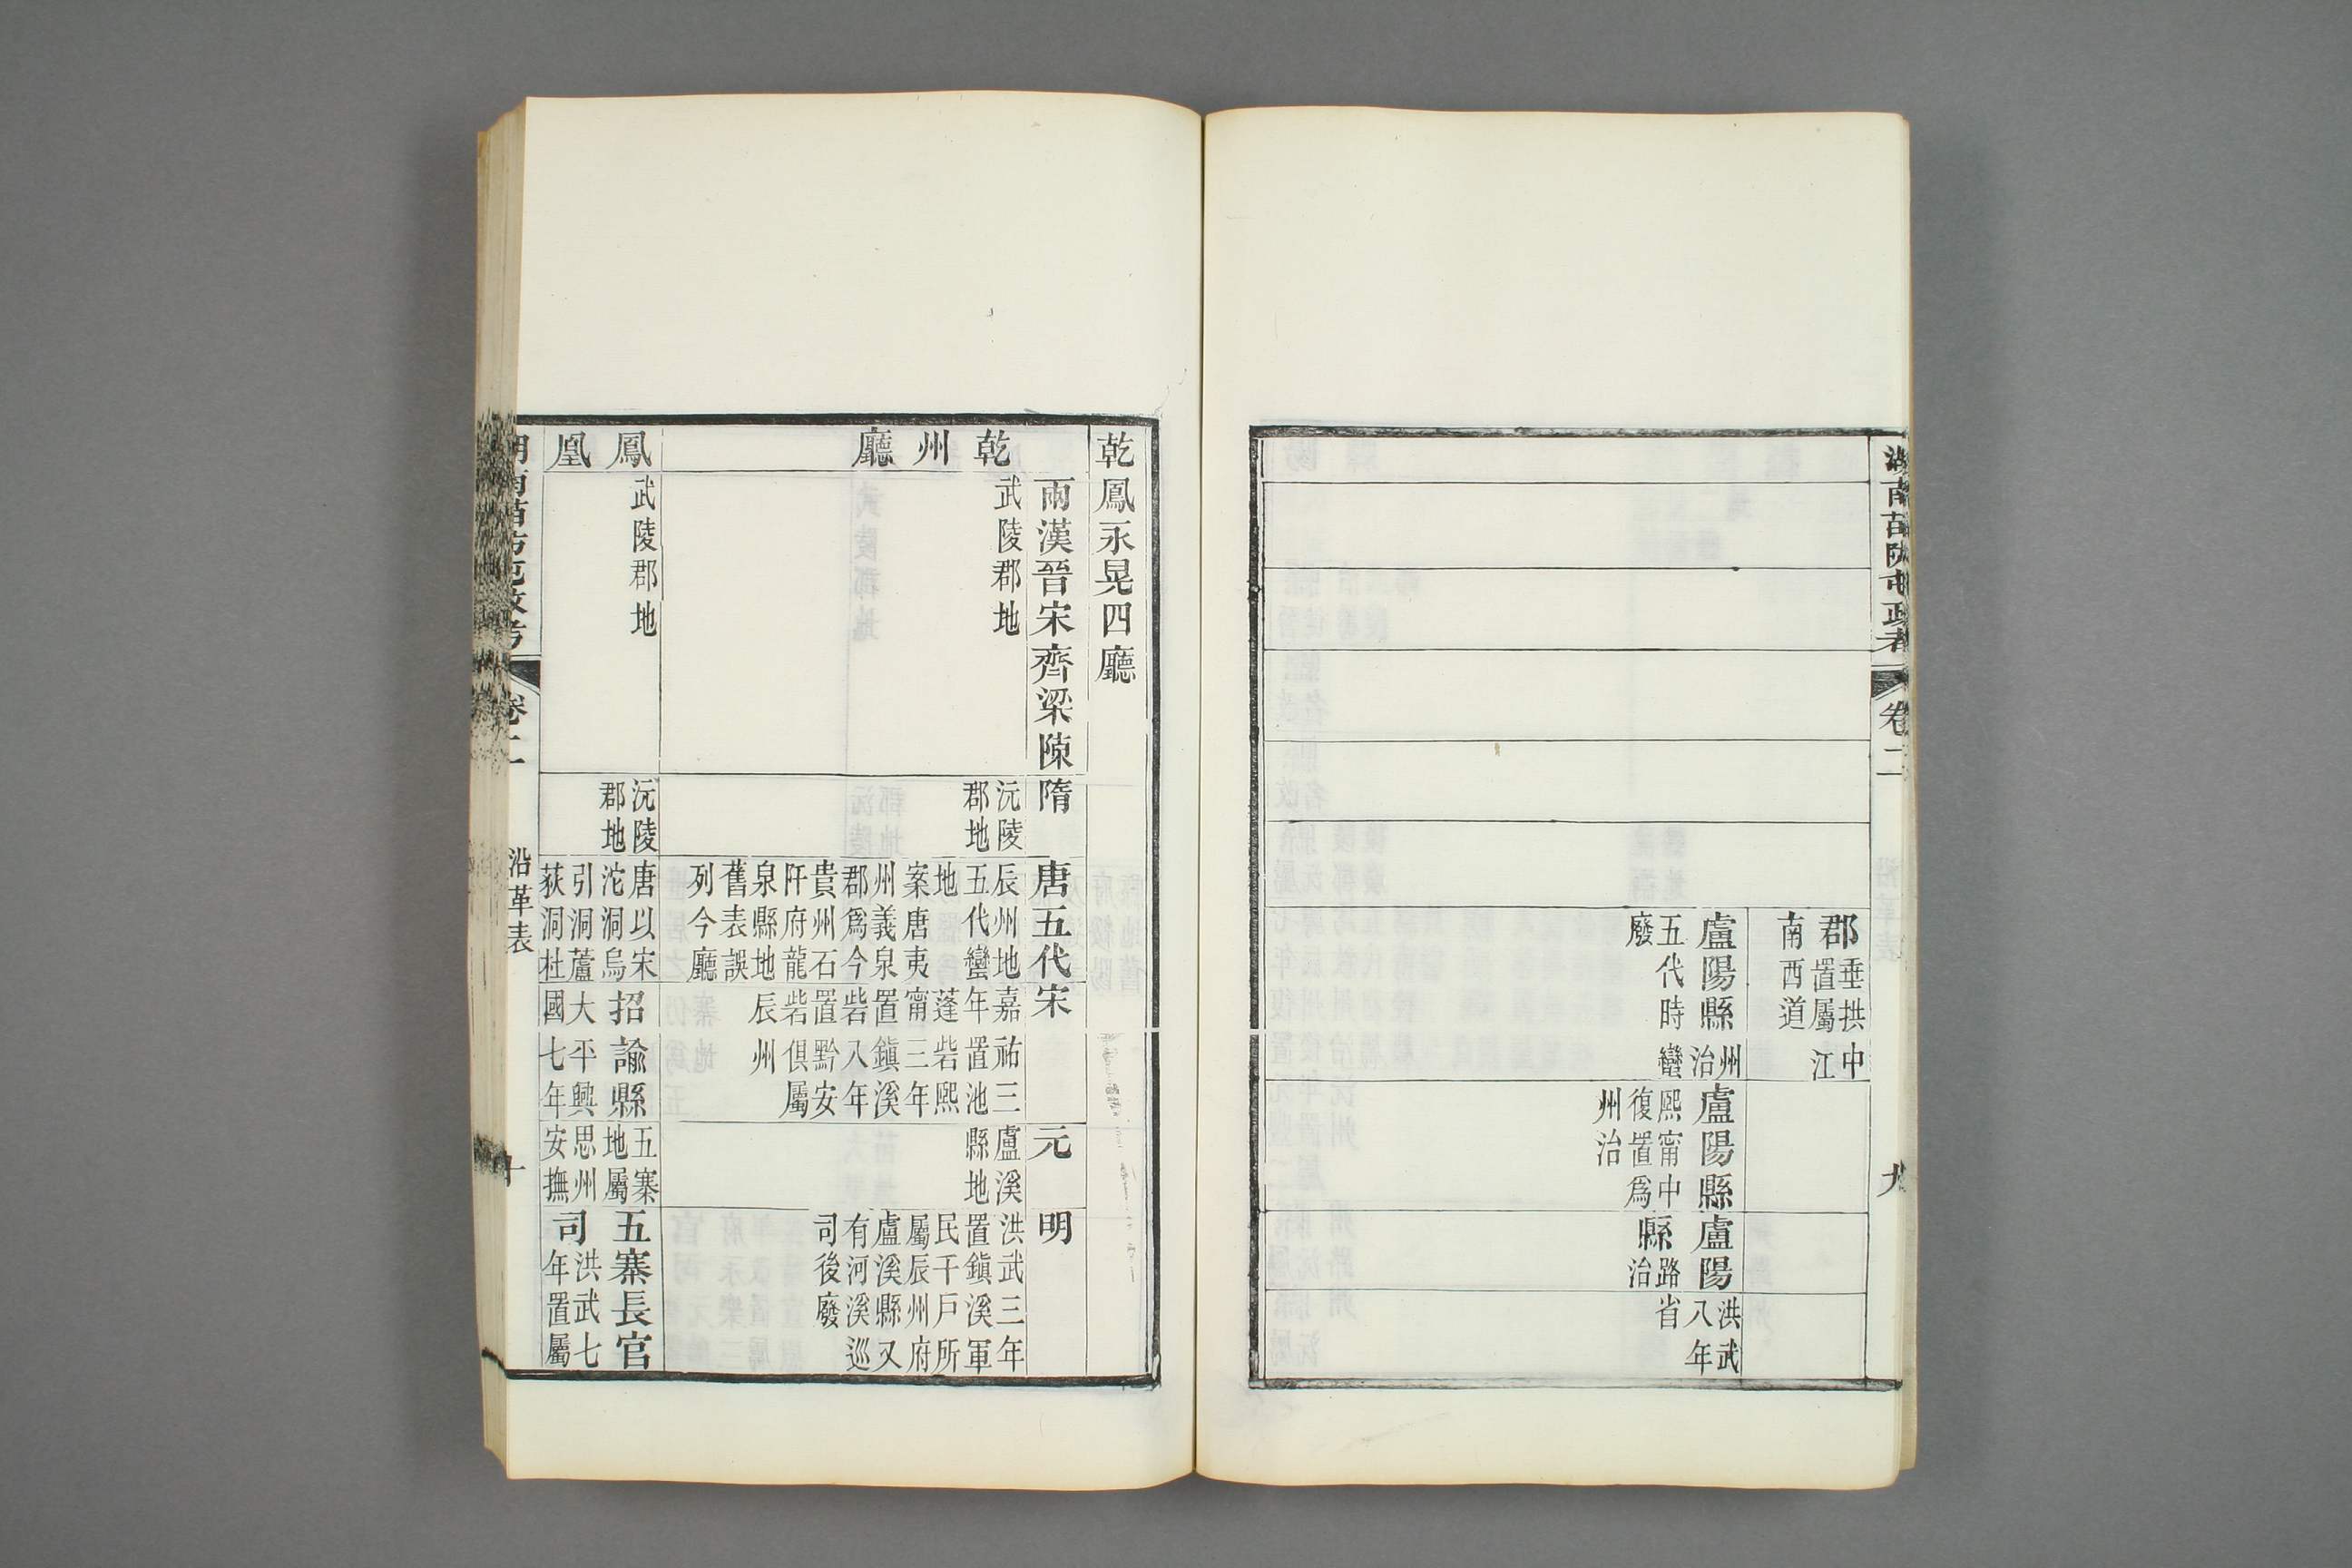 湖南苗防屯政考
卷二
九
郡垂拱中
置屬江
南西道
盧陽縣州
治
五代時蠻
廢
盧陽縣
熙甯中
復置爲
州治
盧陽
縣路
治
洪武
八年
省
乾鳳永晃四廳
兩漢晉宋齊梁陳
隋
唐五代
宋
元
明
乾州廳
武陵郡地
沅陵
郡地
辰州地
五代蠻
地
案唐夷
州義泉
郡爲今
貴州石
阡府龍
泉縣地
舊表誤
列今廳
嘉祐三
年置池
蓬砦熙
甯三年
置鎮溪
砦八年
置黔安
砦俱屬
辰州
盧溪
縣地
洪武三年
置鎮溪軍
民千戶所
屬辰州府
盧溪縣又
有河溪巡
司後廢
鳳凰
武陵郡地
沅陵
郡地
唐以宋
沱洞烏
引洞蘆
荻洞杜
招諭縣
大平興
國七年
五寨
地屬
思州
安撫
五寨長官
司洪武七
年置屬
湖南苗防屯政考
卷二
沿革表
十